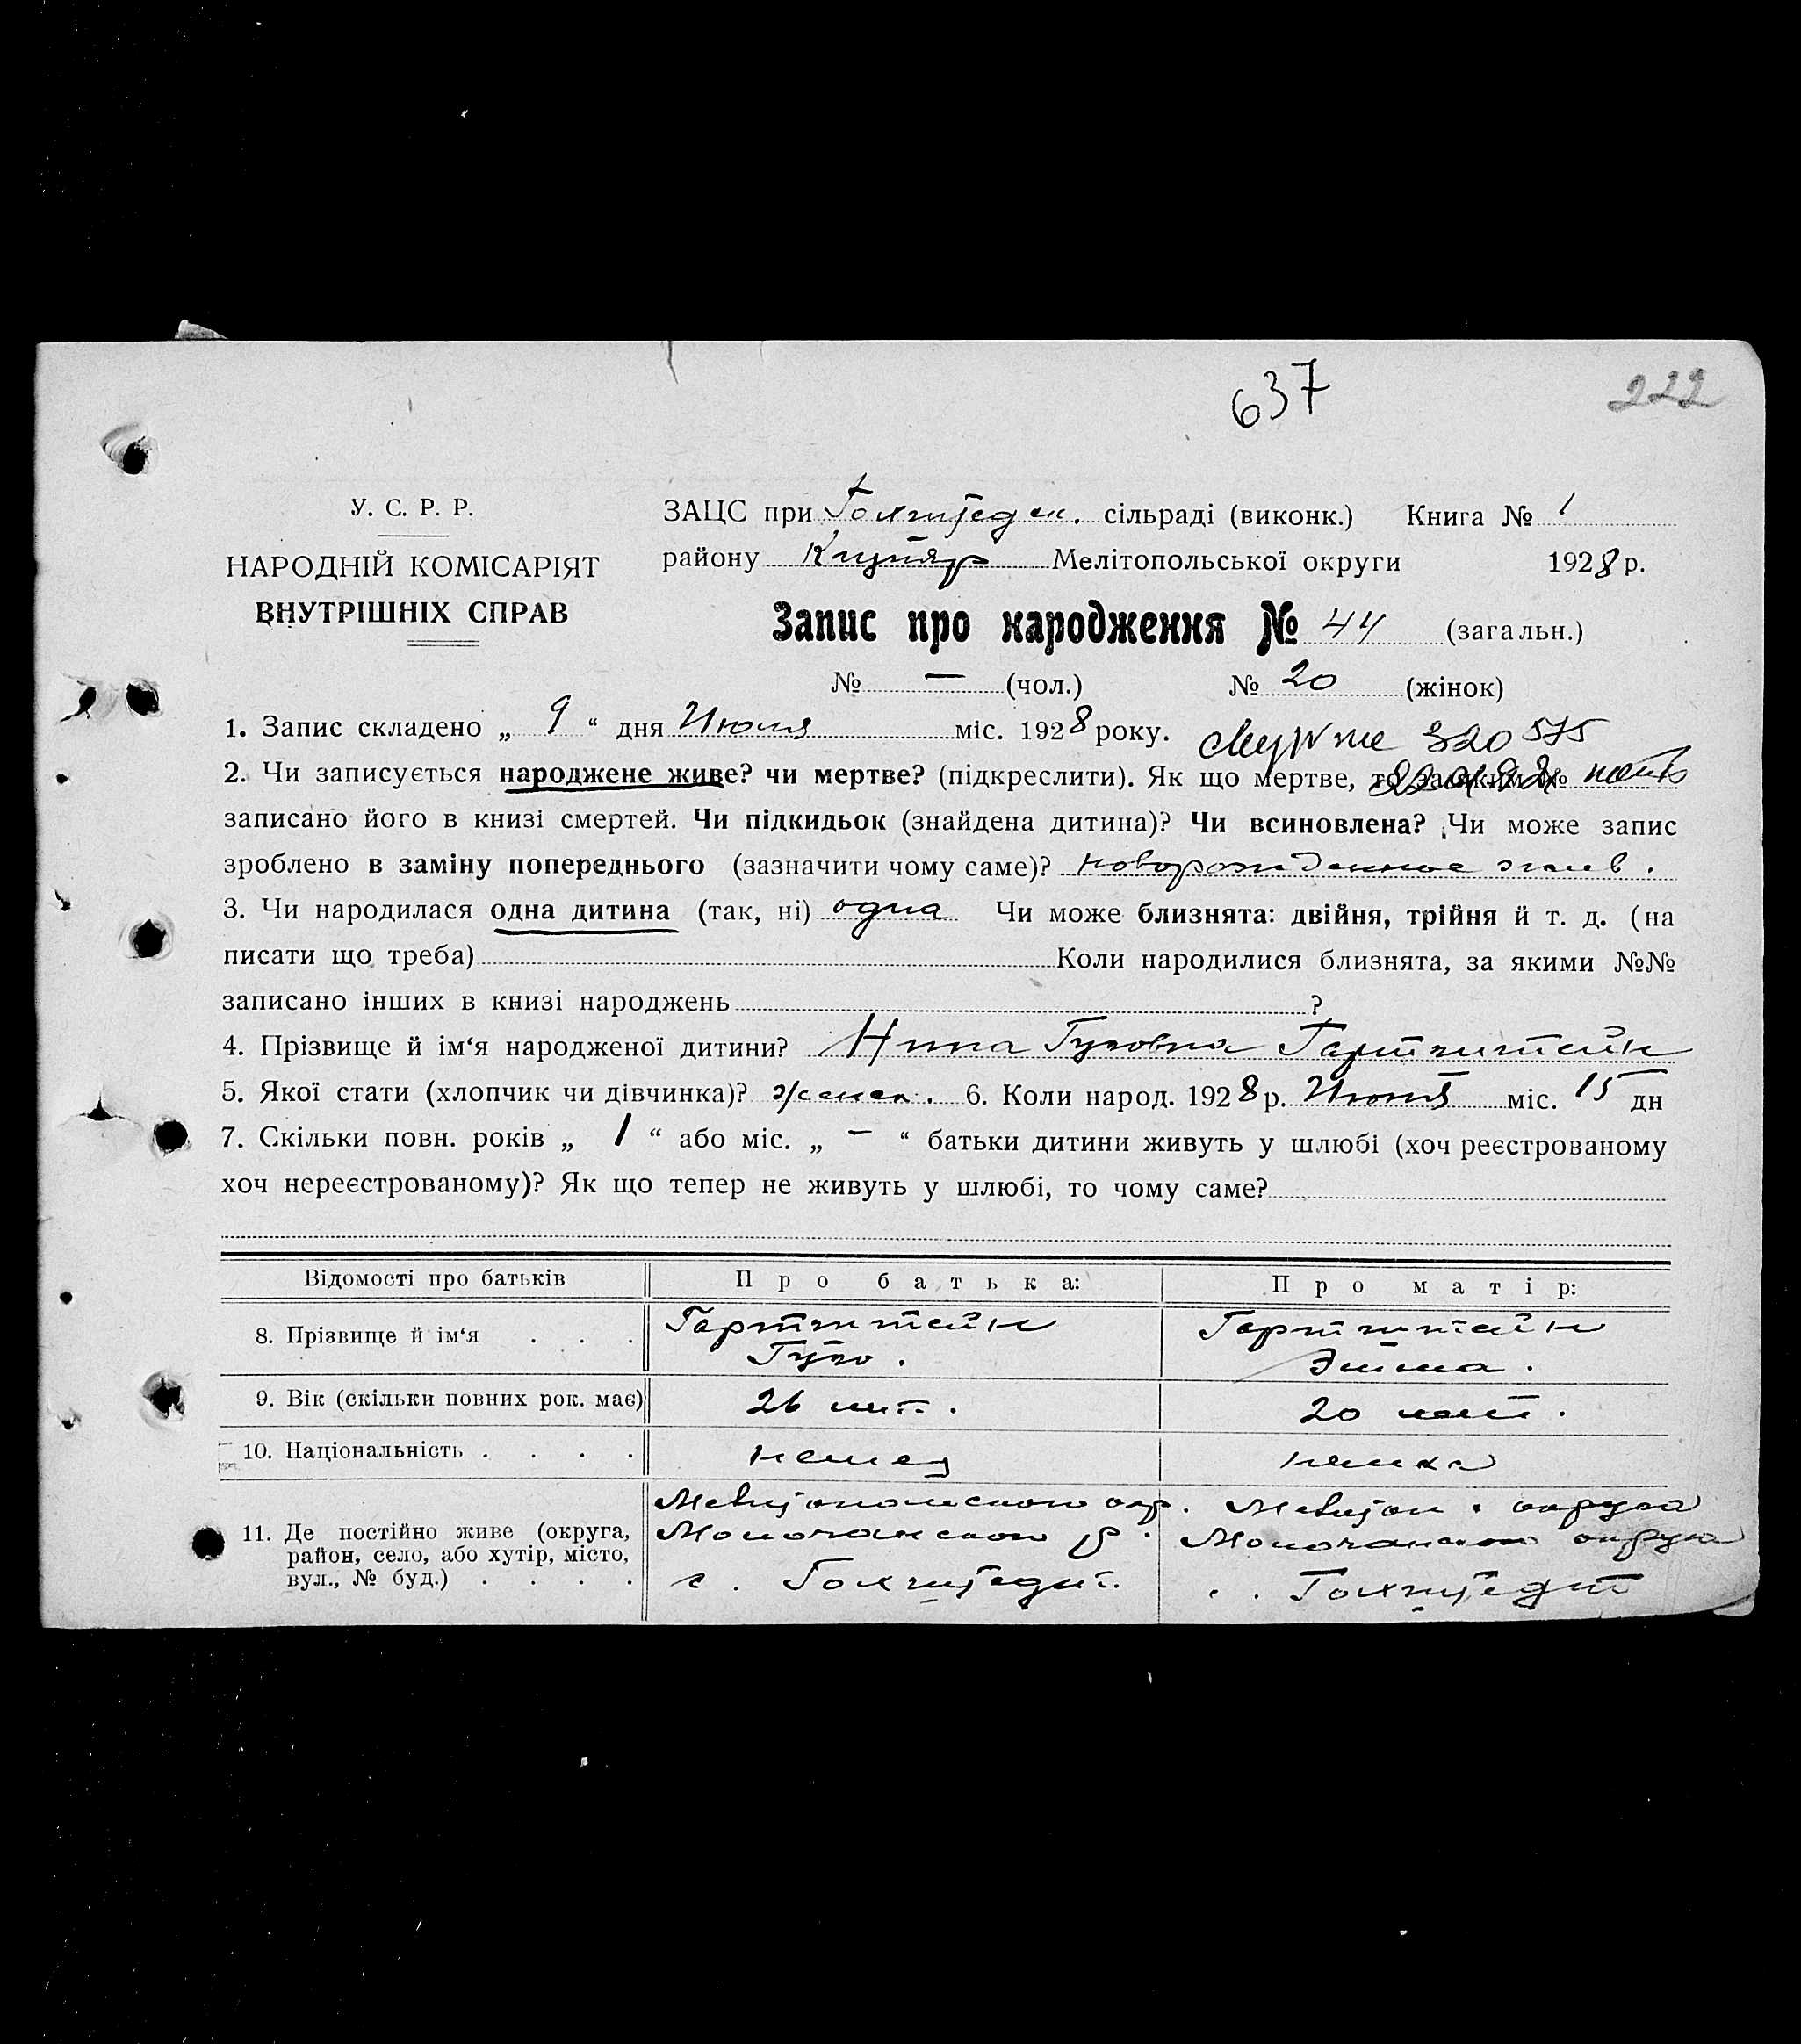 637
222
У. С. Р. Р.
НАРОДНІЙ КОМІСАРІЯТ
ВНУТРІШНІХ СПРАВ
ЗАЦС при сільраді (виконк.) Книга № 1
району Мелітопольської округи 1928 р.
Запис про народження № 44 (загальн.)
№ — (чол.) № 20 (жінок)
1. Запис складено „ 9 “ дня Июля міс. 1928 року. 320575
2. Чи записується народжене живе? чи мертве? (підкреслити). Як що мертве, то за яким №
записано його в книзі смертей. Чи підкидьок (знайдена дитина)? Чи всиновлена? Чи може запис
зроблено в заміну попереднього (зазначити чому саме)? новорожденное
3. Чи народилася одна дитина (так, ні) одна Чи може близнята: двійня, трійня й т. д. (на
писати що треба) Коли народилися близнята, за якими №№
записано інших в книзі народжень ?
4. Прізвище й ім‘я народженої дитини? Нина Гуговна Гартштейн
5. Якої стати (хлопчик чи дівчинка)? женск. 6. Коли народ. 1928 р. міс. 15 дн
7. Скільки повн. років „ 1 “ або міс. „ — “ батьки дитини живуть у шлюбі (хоч реєстрованому
хоч нереєстрованому)? Як що тепер не живуть у шлюбі, то чому саме?
Відомості про батьків Про батька: Про матір:
8. Прізвище й ім‘я . . . Гартштейн Гуго. Гартштейн
9. Вік (скільки повних рок. має) 26 лет. 20 лет.
10. Національність . . . . немец немка
11. Де постійно живе (округа, район, село, або хутір, місто, вул., № буд.) . . . . Молочанского р. с. Молочанского округа с.